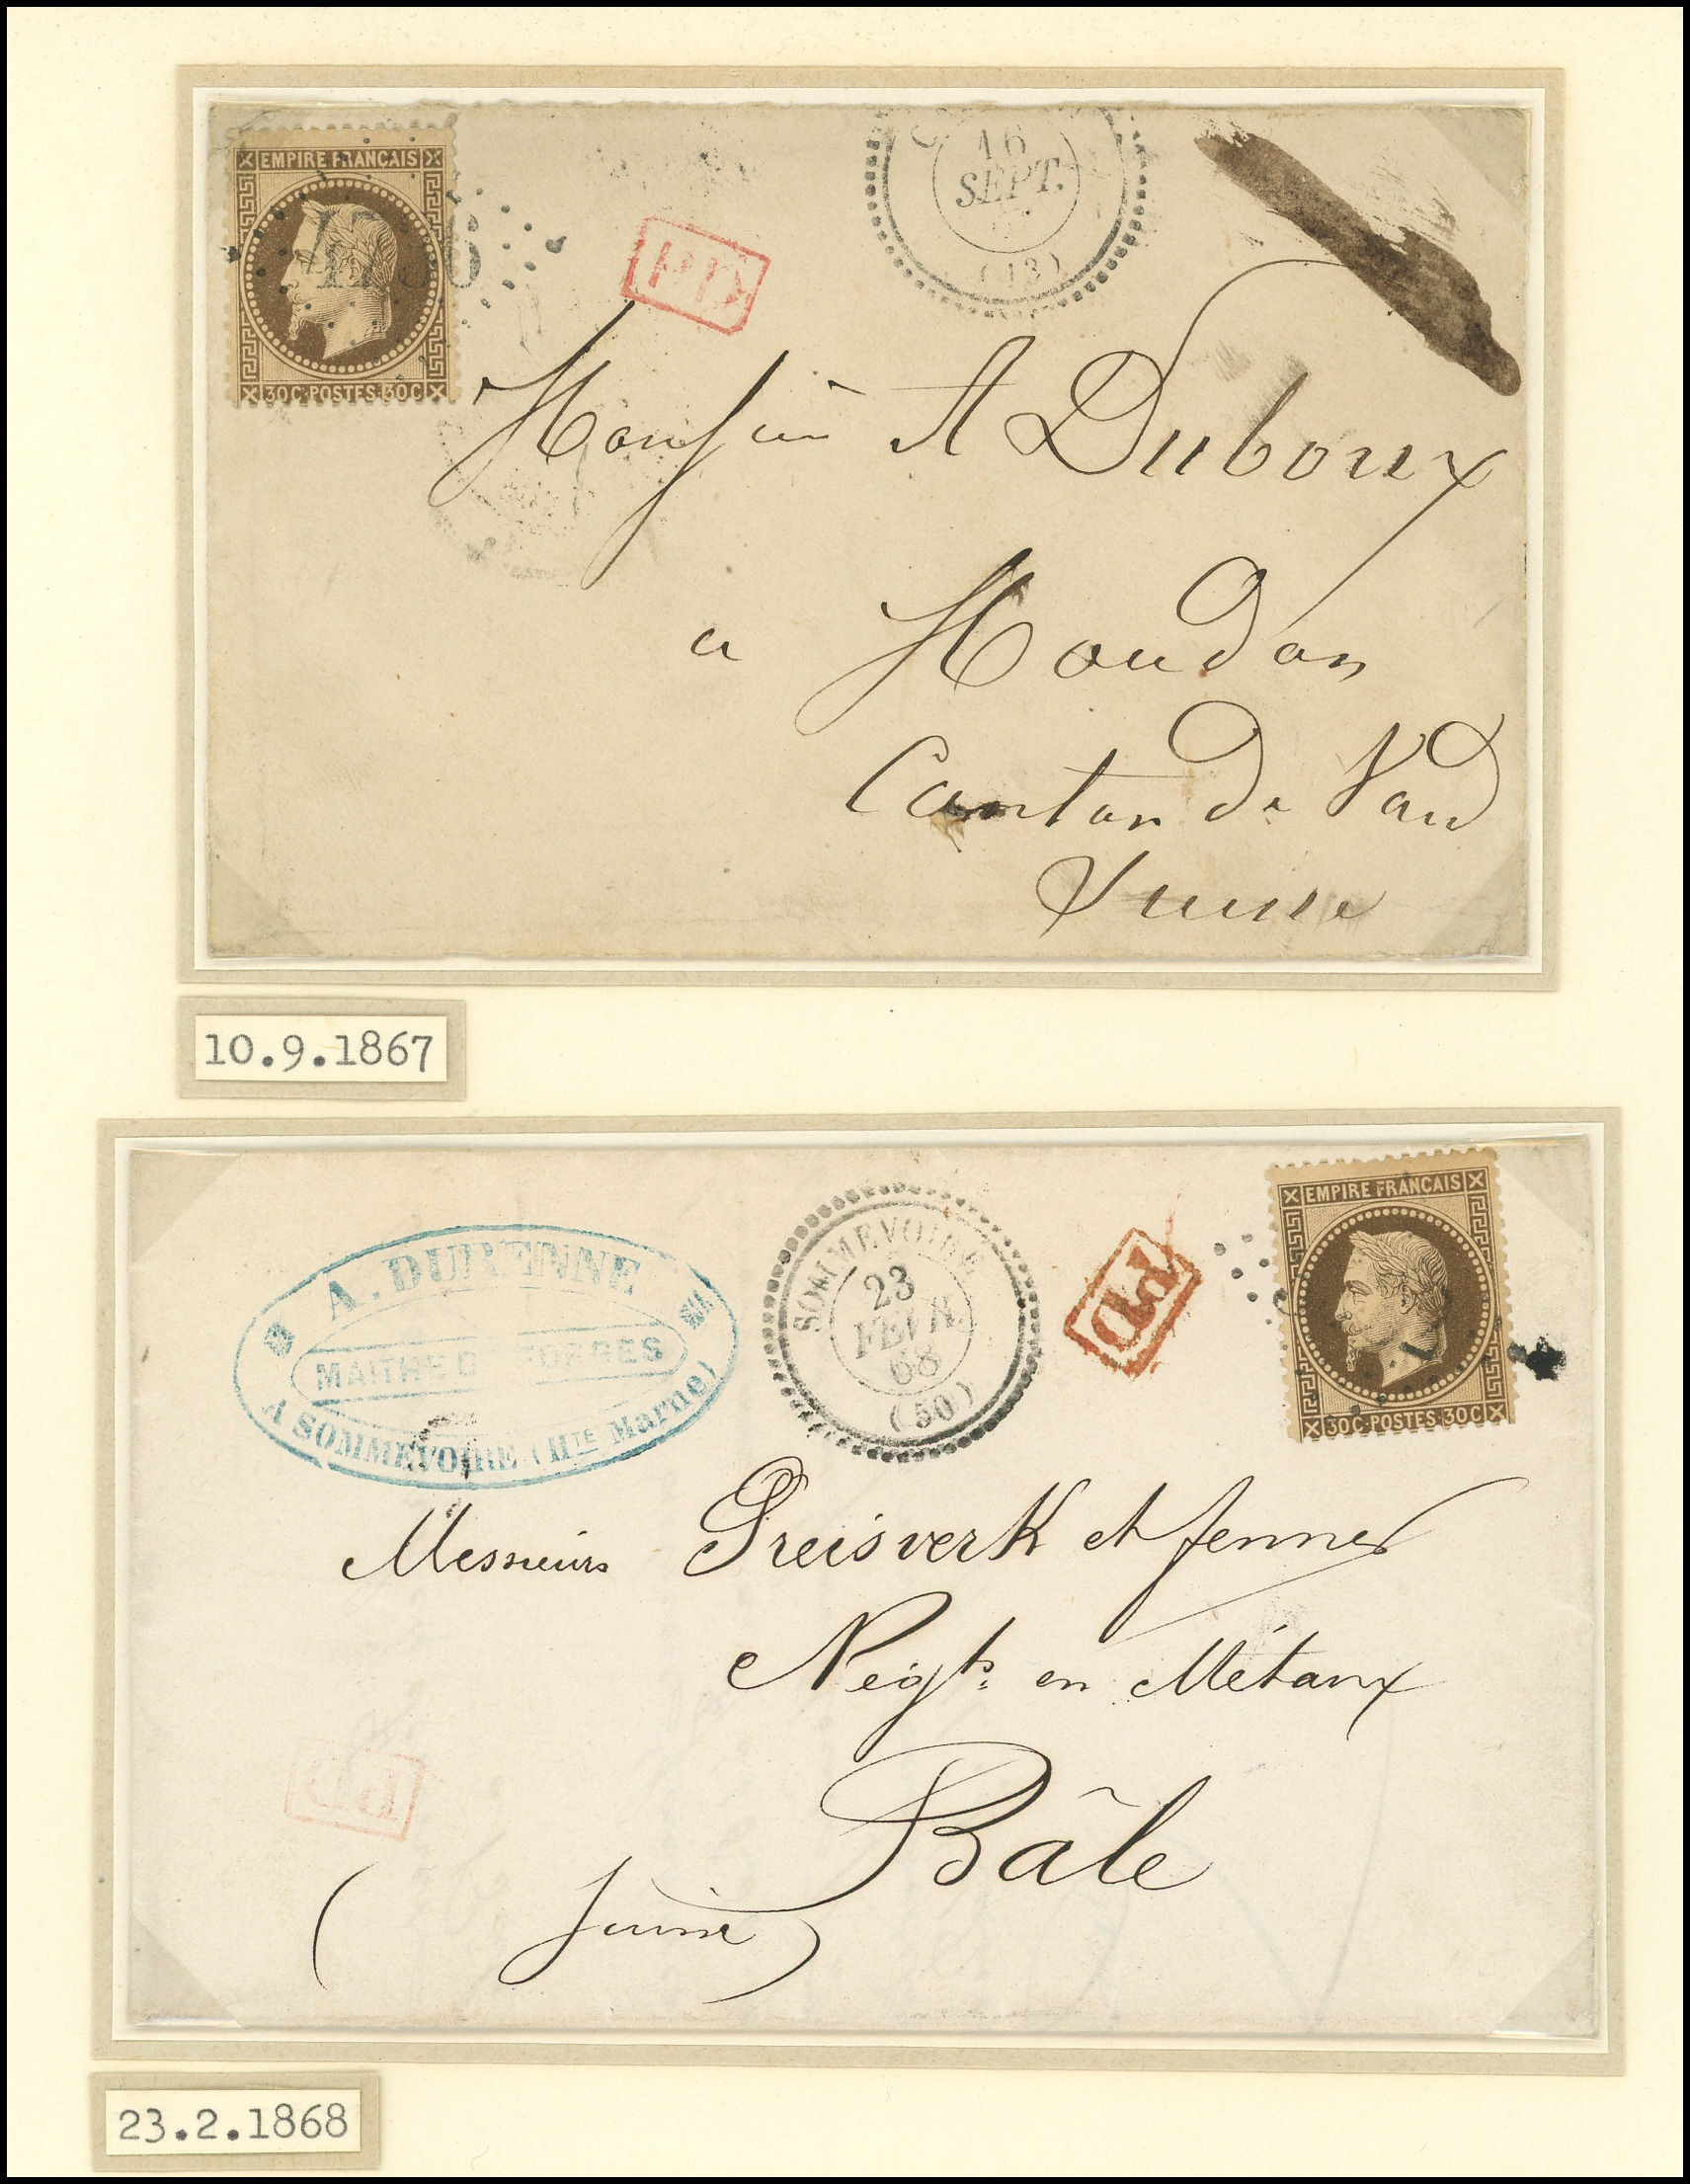 EMPIRE FRANÇAIS
30C·POSTES·30C
PD
16
SEPT.
(12)
Monsieur A Duboux
a Moudon
Canton de Vaud
Suisse
10.9.1867
A. DURENNE
MAITRE DE FORGES
A SOMMEVOIRE (Hte Marne)
SOMMEVOIRE
23
FEVR.
68
(50)
PD
EMPIRE FRANÇAIS
30C·POSTES·30C
Messieurs Preisverk et fenner
Negts. en Métaux
Bâle
PD
(Suisse)
23.2.1868